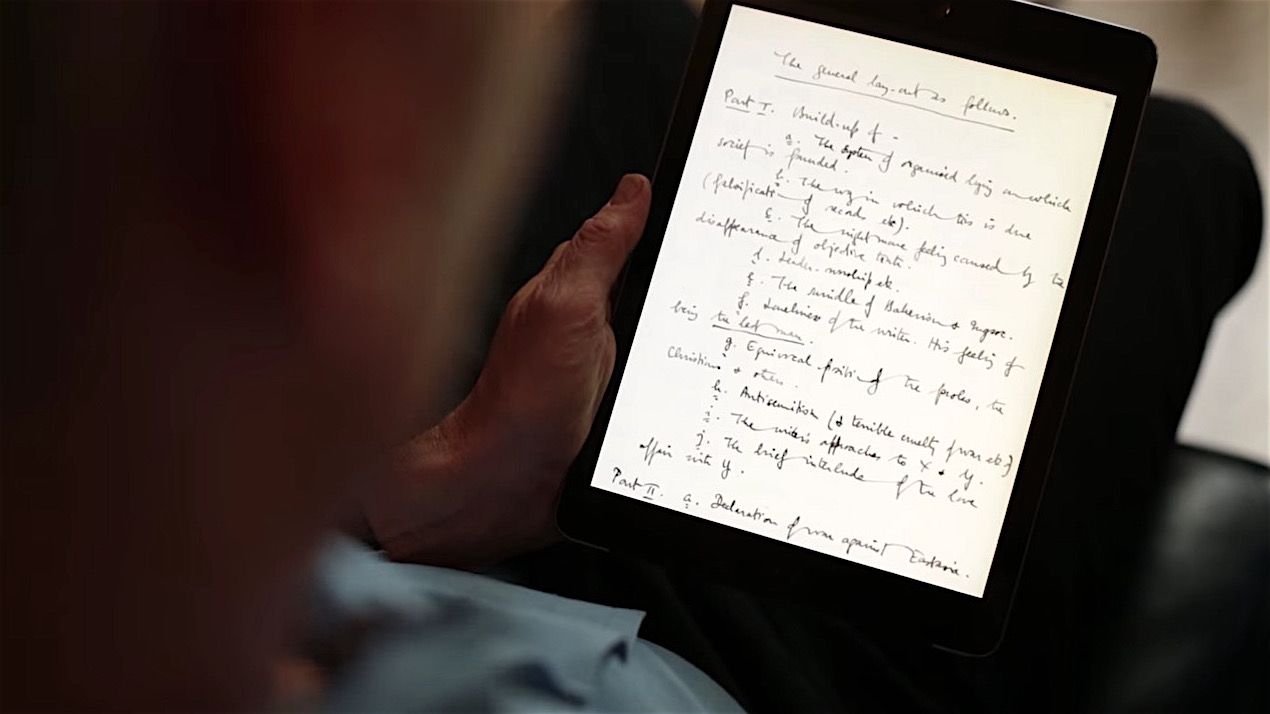 The general lay-out as follows.
Part I. Build-up of –
a. The system of organised lying on which
society is founded.
b. The way in which this is done
(falsification of records etc).
c. The nightmare feeling caused by the
disappearance of objective truth.
d. Leader-worship etc.
e. The swindle of Bakerism & Ingsoc.
f. Loneliness of the writer. His feeling of
being the last man.
g. Equivocal position of the proles, the
Christians & others.
h. Antisemitism (& terrible cruelty of war etc.)
i. The writer's approaches to X & Y.
j. The brief interlude of the love
affair with Y.
Part II. a. Declaration of war against Eastasia.